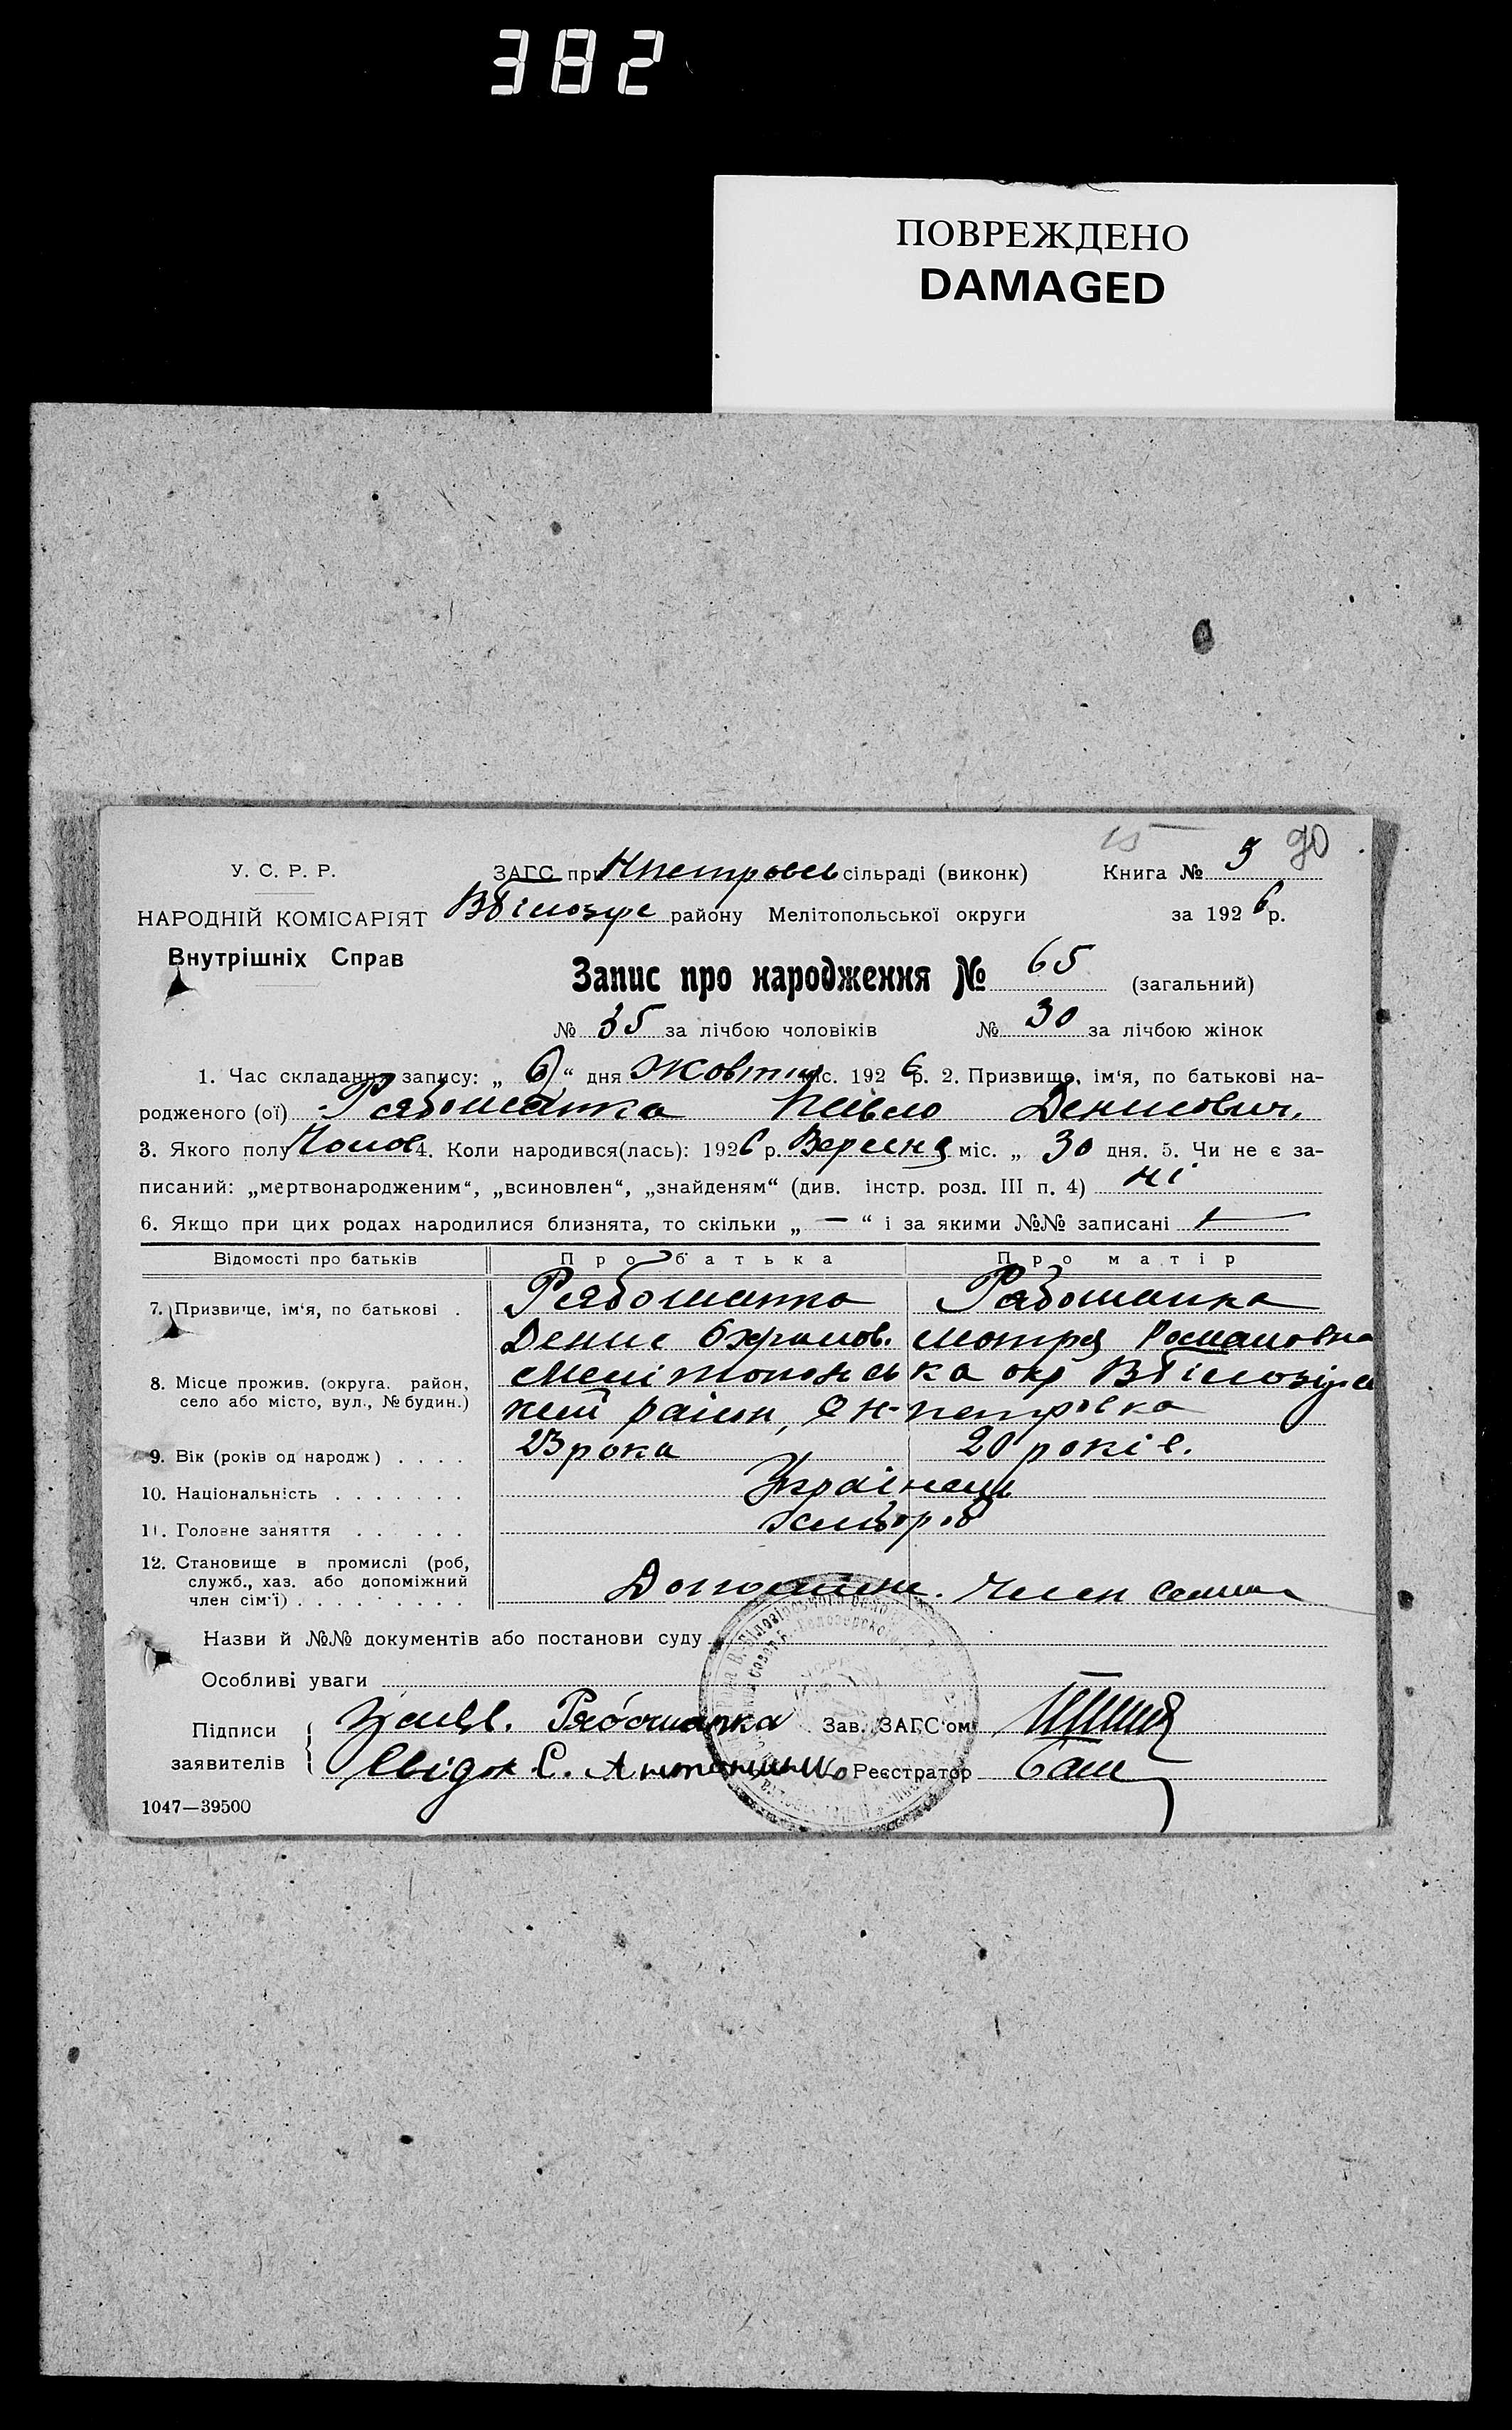 382
ПОВРЕЖДЕНО
DAMAGED
90
У. С. Р. Р.
НАРОДНІЙ КОМІСАРІЯТ
Внутрішніх Справ
ЗАГС при Нпетровсь сільраді (виконк)
Книга № 5
Вбілозірс району Мелітопольської округи
за 1926 р.
Запис про народження № 65 (загальний)
№ 35 за лічбою чоловіків № 30 за лічбою жінок
1. Час складання запису: „ 6 “ дня Жовтня міс. 1926 р. 2. Призвище, ім'я, по батькові на-
родженого (ої) Рябошапка Павло Денисович.
3. Якого полу Чолов 4. Коли народився(лась): 1926 р. Вересня міс. „ 30 дня. 5. Чи не є за-
писаний: „мертвонародженим“, „всиновлен“, „знайденям“ (див. інстр. розд. III п. 4) ні
6. Якщо при цих родах народилися близнята, то скільки „ — “ і за якими №№ записані —
Відомості про батьків Про батька Про матір
7. Призвище, ім'я, по батькові . Рябошапка Рабошапка
Денис Охрамов. Мотря Романовна
8. Місце прожив. (округа, район,
село або місто, вул., № будин.)
Мелітопольська окр Вбілозірсь
кий район, с Н-петровка
9. Вік (років од народж) . . . . 23 рока 20 років.
10. Національність . . . . . . . Українець
11. Головне заняття . . . . . . Хлібороб
12. Становище в промислі (роб,
служб., хаз. або допоміжний
член сім'ї) . . . . . . . . . Допоміжн. Член семии
Назви й №№ документів або постанови суду
Особливі уваги
Підписи
заявителів
Заявл. Рябошапка
Зав. ЗАГС'ом
Свідок С.
Реєстратор
1047—39500